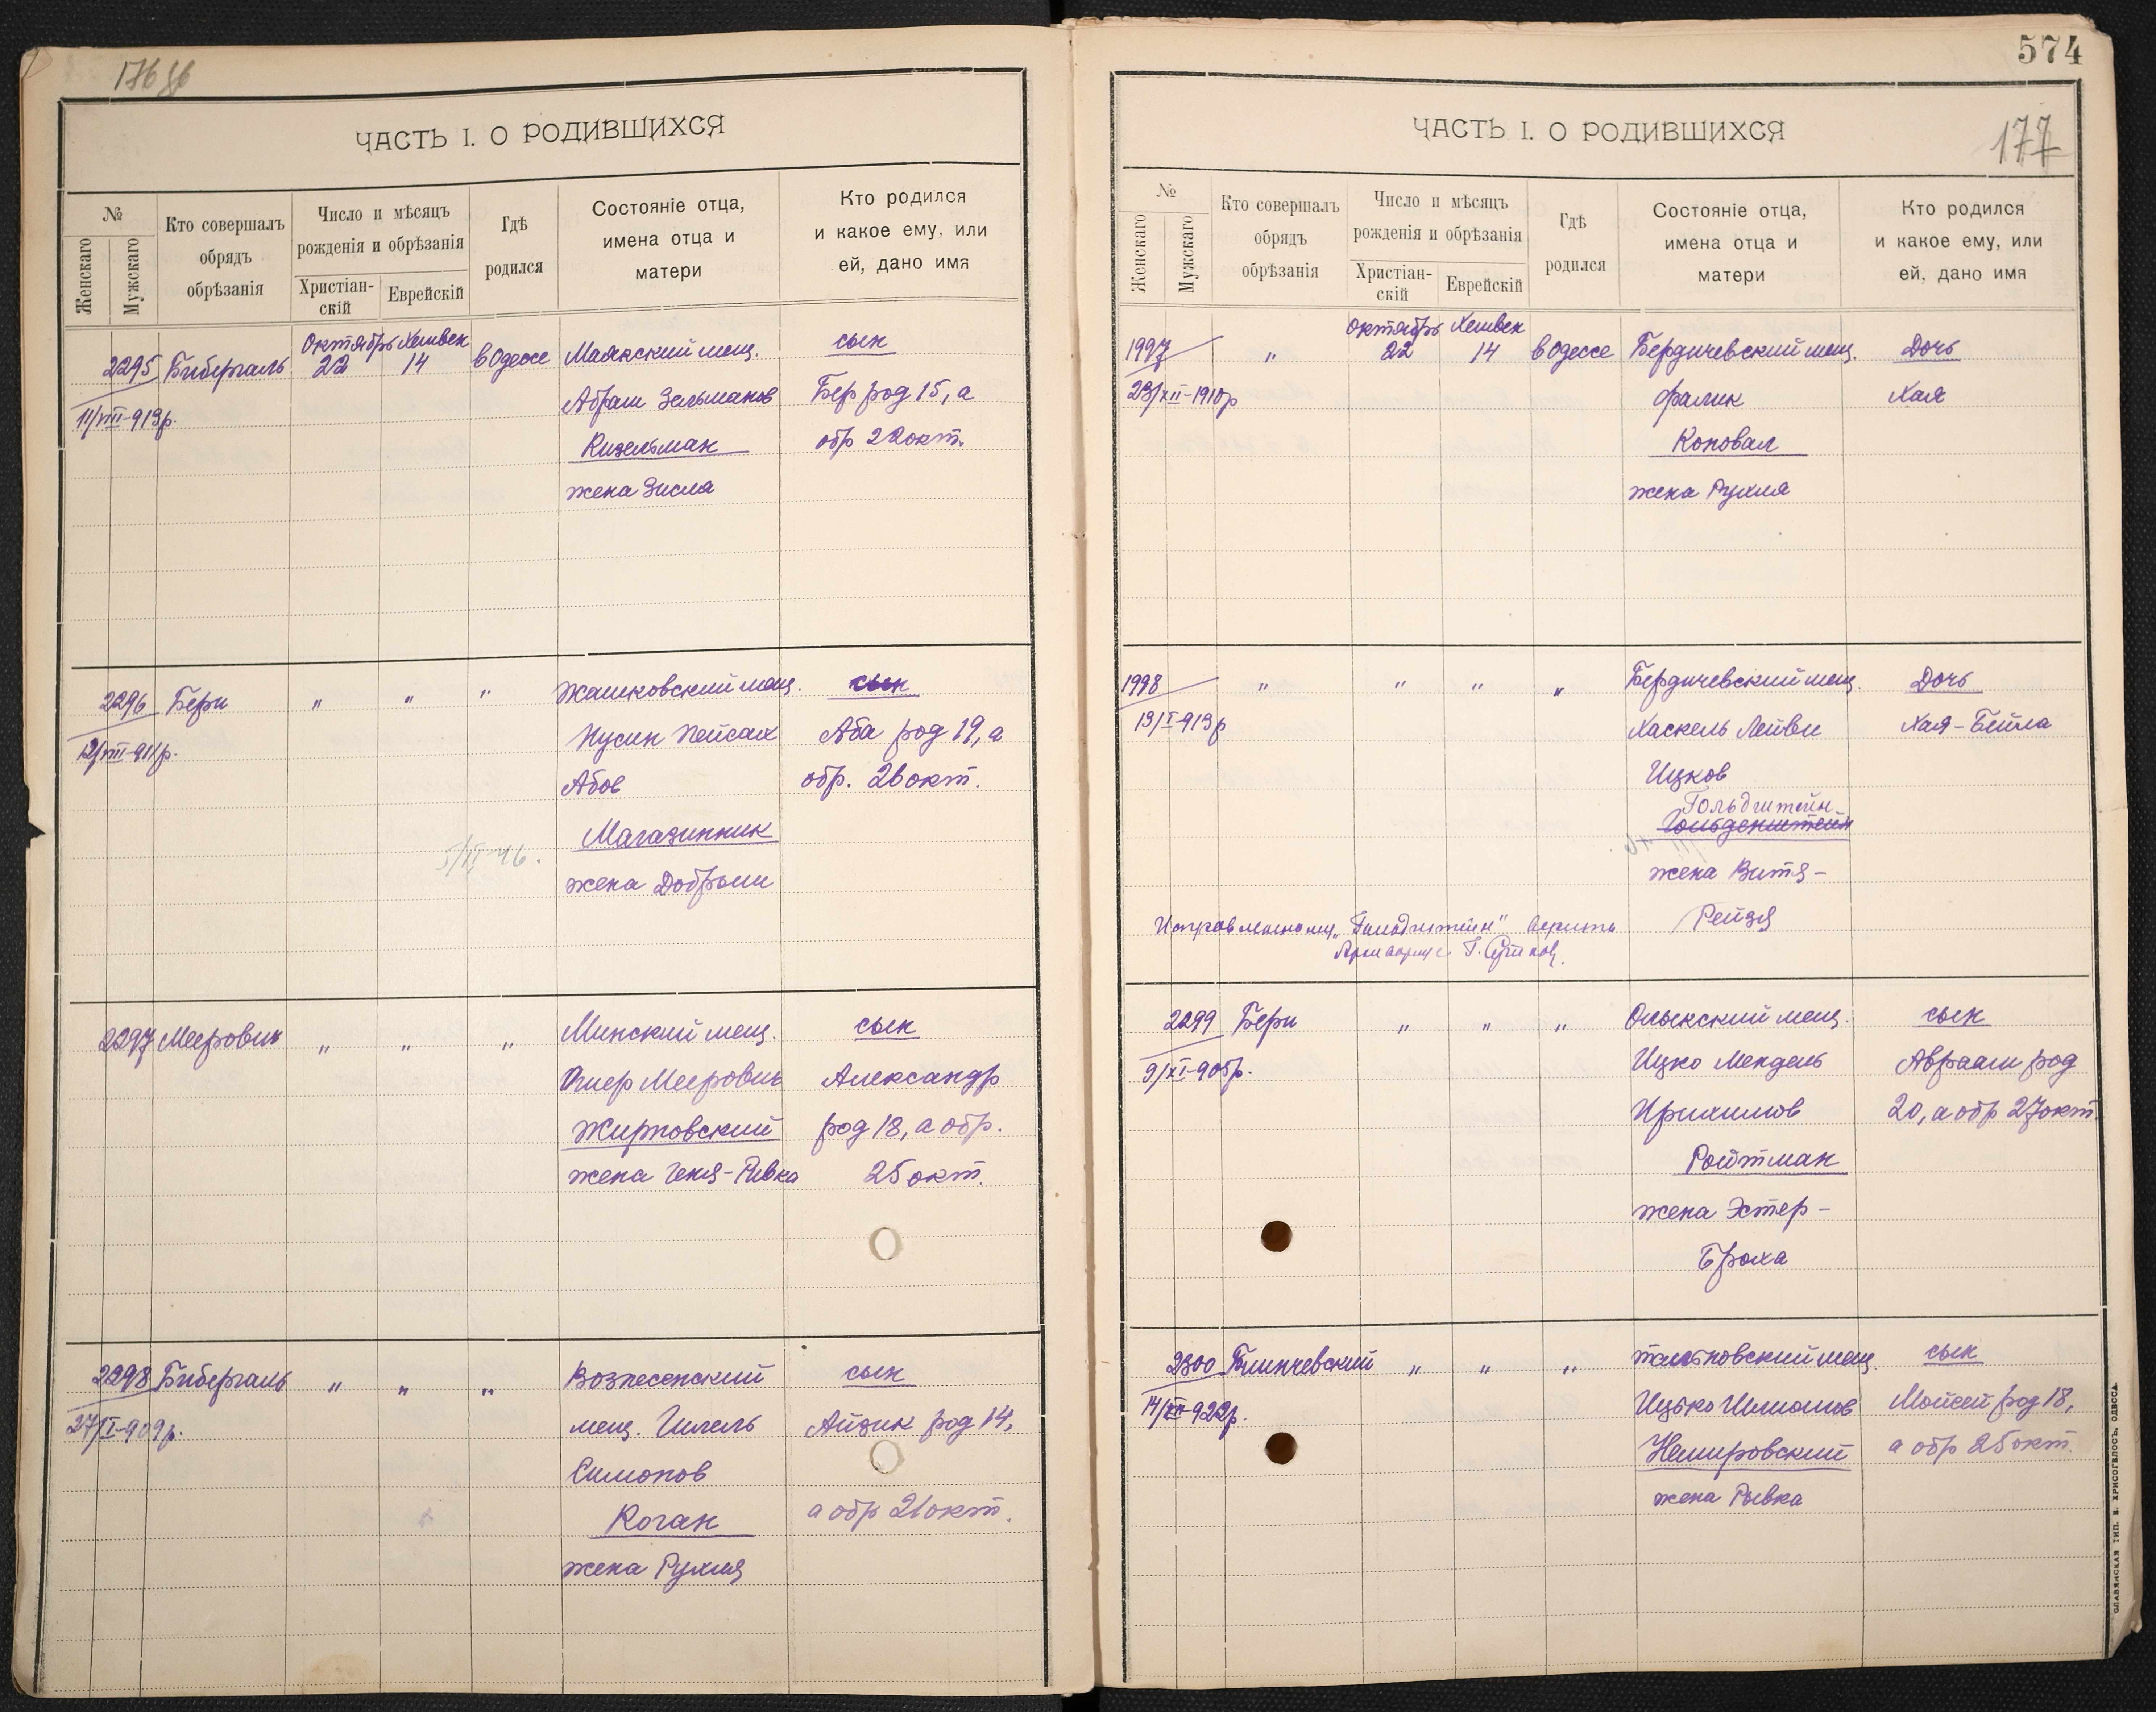 176 об
ЧАСТЬ I. О РОДИВШИХСЯ
№
Женскаго
Мужскаго
Кто совершалъ
обрядъ
обрѣзанія
Число и мѣсяцъ
рожденія и обрѣзанія
Христіан-
скій
Еврейскій
Гдѣ
родился
Состояніе отца,
имена отца и
матери
Кто родился
и какое ему, или
ей, дано имя
2295 Бибергаль Октябрь 22 Хешвен 14 в Одессе Маякский мещ. сын
11/VIII-913р. Абрам Зельманов Бер род 15, а
Кизельман обр 22 окт.
жена Зисля
2296 Бери " " " Жашковский мещ. сын
12/VIII-911р. Нусин Пейсах Аба род 19, а
Абов обр. 26 окт.
Магазинник
жена Добрыш
2297 Меерович " " " Минский мещ. сын
Ошер Меерович Александр
Жирковский род 18, а обр.
жена Геня-Ривка 25 окт.
2298 Бибергаль " " " Вознесенский сын
27/I-909р. мещ. Шлель Айзик род 14,
Симонов
Коган а обр 21 окт.
жена Рухля
574
177
ЧАСТЬ I. О РОДИВШИХСЯ
№
Женскаго
Мужскаго
Кто совершалъ
обрядъ
обрѣзанія
Число и мѣсяцъ
рожденія и обрѣзанія
Христіан-
скій
Еврейскій
Гдѣ
родился
Состояніе отца,
имена отца и
матери
Кто родился
и какое ему, или
ей, дано имя
1997 " Октябрь 22 Хешвен 14 в Одессе Бердичевский мещ. Дочь
23/XII-1910р Фалик Хая
Коновал
жена Рухля
1998 " " " " Бердичевский мещ. Дочь
13/I-913р Хаскель Лейви Хая-Бейла
Ицков
Гольдштейн
Гольденштейн
жена Витя-
Рейзя
Исправленному „Гольдштейн" верить
2299 Бери " " " Олыкский мещ. сын
9/XI-905р. Ицко Мендель Авраам род
20, а обр 27 окт.
Ройтман
жена Эстер-
Броха
2300 " " " Тальновский мещ. сын
14/XII-922р. Ицько Шлиомов Мойсей род 18,
Немировский а обр 25 окт.
жена Рывка
СЛАВЯНСКАЯ ТИП. Е. ХРИСОГЕЛОСЪ, ОДЕССА.